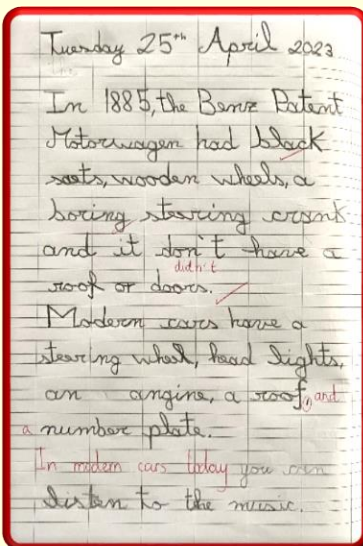 Tuesday 25th April 2023
In 1885, the Benz Patent
Motorwagen had black
seats, wooden wheels, a
boring stearing crank
and it don't have a
didn't
roof or doors.
Modern cars have a
stearing wheel, head lights,
an angine, a roof, and
a number plate.
In modern cars today you can
listen to the music.